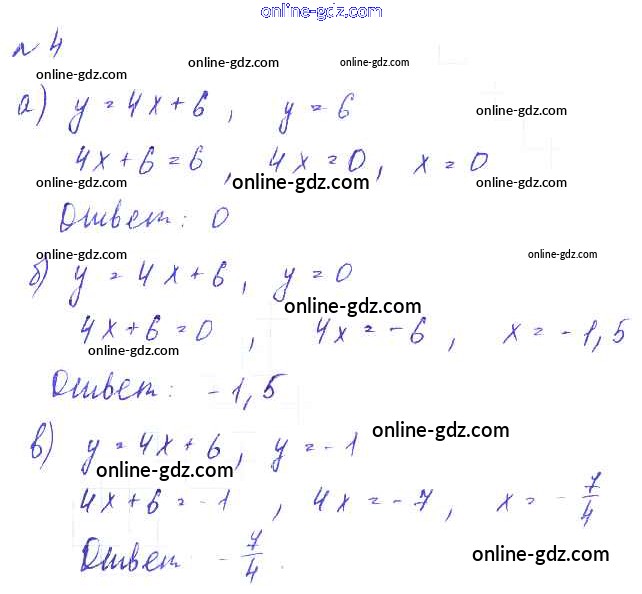 online-gdz.com
№ 4
online-gdz.com online-gdz.com
online-gdz.com
а) y = 4x + 6, y = 6
online-gdz.com
4x + 6 = 6, 4x = 0, x = 0
online-gdz.com online-gdz.com online-gdz.com
Ответ: 0
online-gdz.com online-gdz.com
б) y = 4x + 6, y = 0
online-gdz.com
4x + 6 = 0, 4x = -6, x = -1,5
online-gdz.com
Ответ: -1,5
online-gdz.com
в) y = 4x + 6, y = -1
online-gdz.com
4x + 6 = -1, 4x = -7, x = -7/4
Ответ -7/4.
online-gdz.com